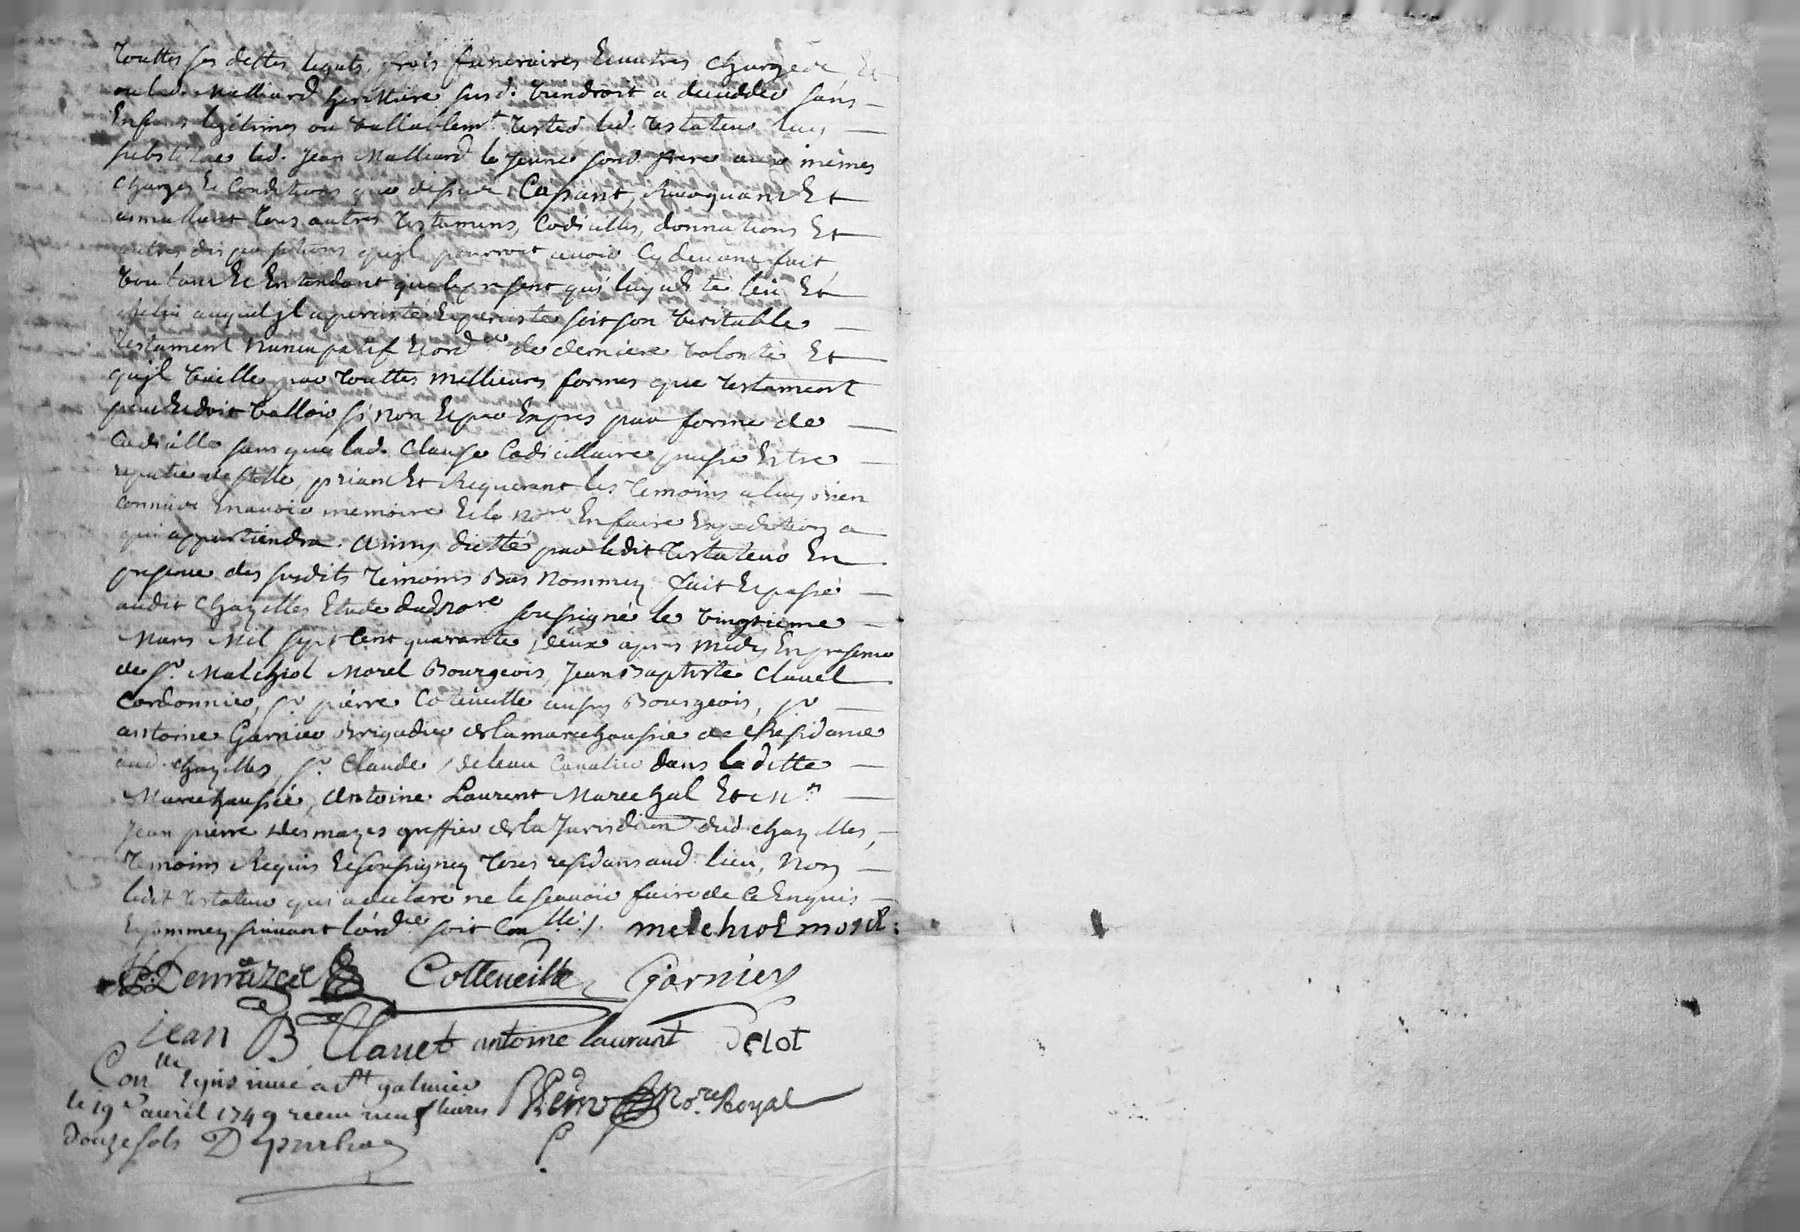 touttes ses dettes legats, frois funeraires Et autres charges Et
ou lad. Malliard heritiere susd. viendroit a deceddeo sans
Enfans legitimes ou vallablemt. testeo led. testateur luy
substitue led. Jean Malliard le jeune sond. frere aux mêmes
charges Et Conditions que dessus Cassant, Revoquant Et
annullant tous autres testamens, Codicilles, donnations Et
autres dispositions qu'jl pourroit avoir Cy devant fait
voulant Et Entendant que le present qui luy a Eté leu Et
releu auquel jl a persisté Et persiste soit son veritable
testament nuncupatif Et ordre de derniere volonté Et
qujl vaille par touttes meilleures formes que testament
peut Et doit valloir si non Et par Expres par forme de
Codicille sans que lad. Clause Codicillaire puisse Estre
reputée de stille, priant Et Requerant les temoins a luy bien
connus En avoir memoire Et le nore En faire Expedition a
qui appartiendra. ainsy dicté par ledit testateur En
presence des susdits temoins Bas nommez fait Et passé
audit Chazelles Etude dud nore soussigné le vingtieme
Mars Mil sept Cent quarante deux apres midy En presence
de Sr. Malchiol Morel Bourgeois, Jean Baptiste Clauel
Cordonnier, Sr pierre Coteneille aussy Bourgeois, Sr
antoine Garnier Brigadier de la marechaussée de Residance
aud. chazelles, Sr. Claude Cavalier dans la ditte
Marechaussée, Antoine Laurent Marechal Et Me
Jean pierre desmazes greffier de la Jurisdiction dud chazelles,
temoins Requis Et soussignez tous residans aud. lieu, Non
ledit testateur qui a declaré ne le scauoir faire de Ce Enquis
Et sommez suivant l'ordce soit Conllé /. melchiol morel
Demazet Cotteneille Garnier
jean B Clauet antoine laurant Delot
Conllé Et jnsinué a St galmier
le 19e avril 1749 receu neuf livres nore Royal
douze sols